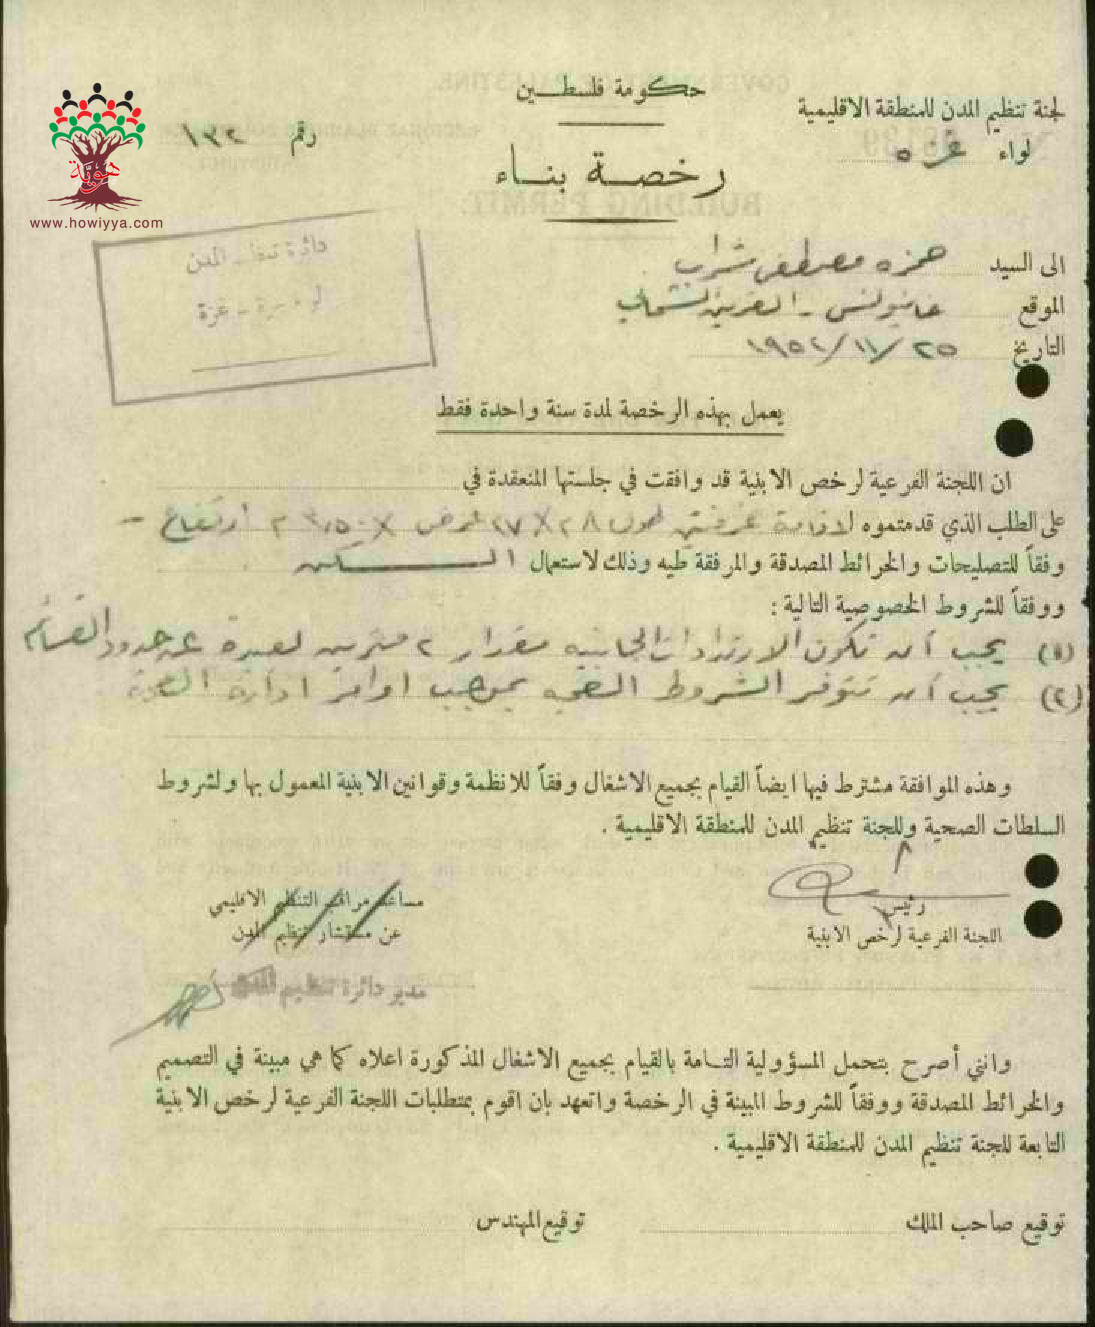 حكومة فلسطين
لجنة تنظيم المدن للمنطقة الاقليمية
لواء غزه
رقم ١٢٢
رخصة بناء
هوية
www.howiyya.com
دائرة تنظيم المدن
غزة
الى السيد حمزه مصطفى شراب
الموقع خانيونس - القرية الشمالي
التاريخ ٢٥/١١/١٩٥٢
يعمل بهذه الرخصة لمدة سنة واحدة فقط
ان اللجنة الفرعية لرخص الابنية قد وافقت في جلستها المنعقدة في
على الطلب الذي قدمتموه لاقامة غرفتين طول ٢٨ عرض ارتفاع
وفقاً للتصليحات والخرائط المصدقة والمرفقة طيه وذلك لاستعمال السكن
ووفقاً للشروط الخصوصية التالية :
(١) يجب أن تكون الارتدادات الجانبيه مقدار ٢ مترين لعبرة عن حدود القسائم
(٢) يجب أن تتوفر الشروط الصحيه بموجب اوامر ادارة الصحة
وهذه الموافقة مشترط فيها ايضاً القيام بجميع الاشغال وفقاً للانظمة وقوانين الابنية المعمول بها ولشروط
السلطات الصحية وللجنة تنظيم المدن للمنطقة الاقليمية .
رئيس
اللجنة الفرعية لرخص الابنية
مساعد مراقب التنظيم الاقليمي
عن مستشار تنظيم المدن
مدير دائرة تنظيم المدن
وانني أصرح بتحمل المسؤولية التامة بالقيام بجميع الاشغال المذكورة اعلاه كما هي مبينة في التصميم
والخرائط المصدقة ووفقاً للشروط المبينة في الرخصة واتعهد بان اقوم بمتطلبات اللجنة الفرعية لرخص الابنية
التابعة للجنة تنظيم المدن للمنطقة الاقليمية .
توقيع صاحب الملك
توقيع المهندس